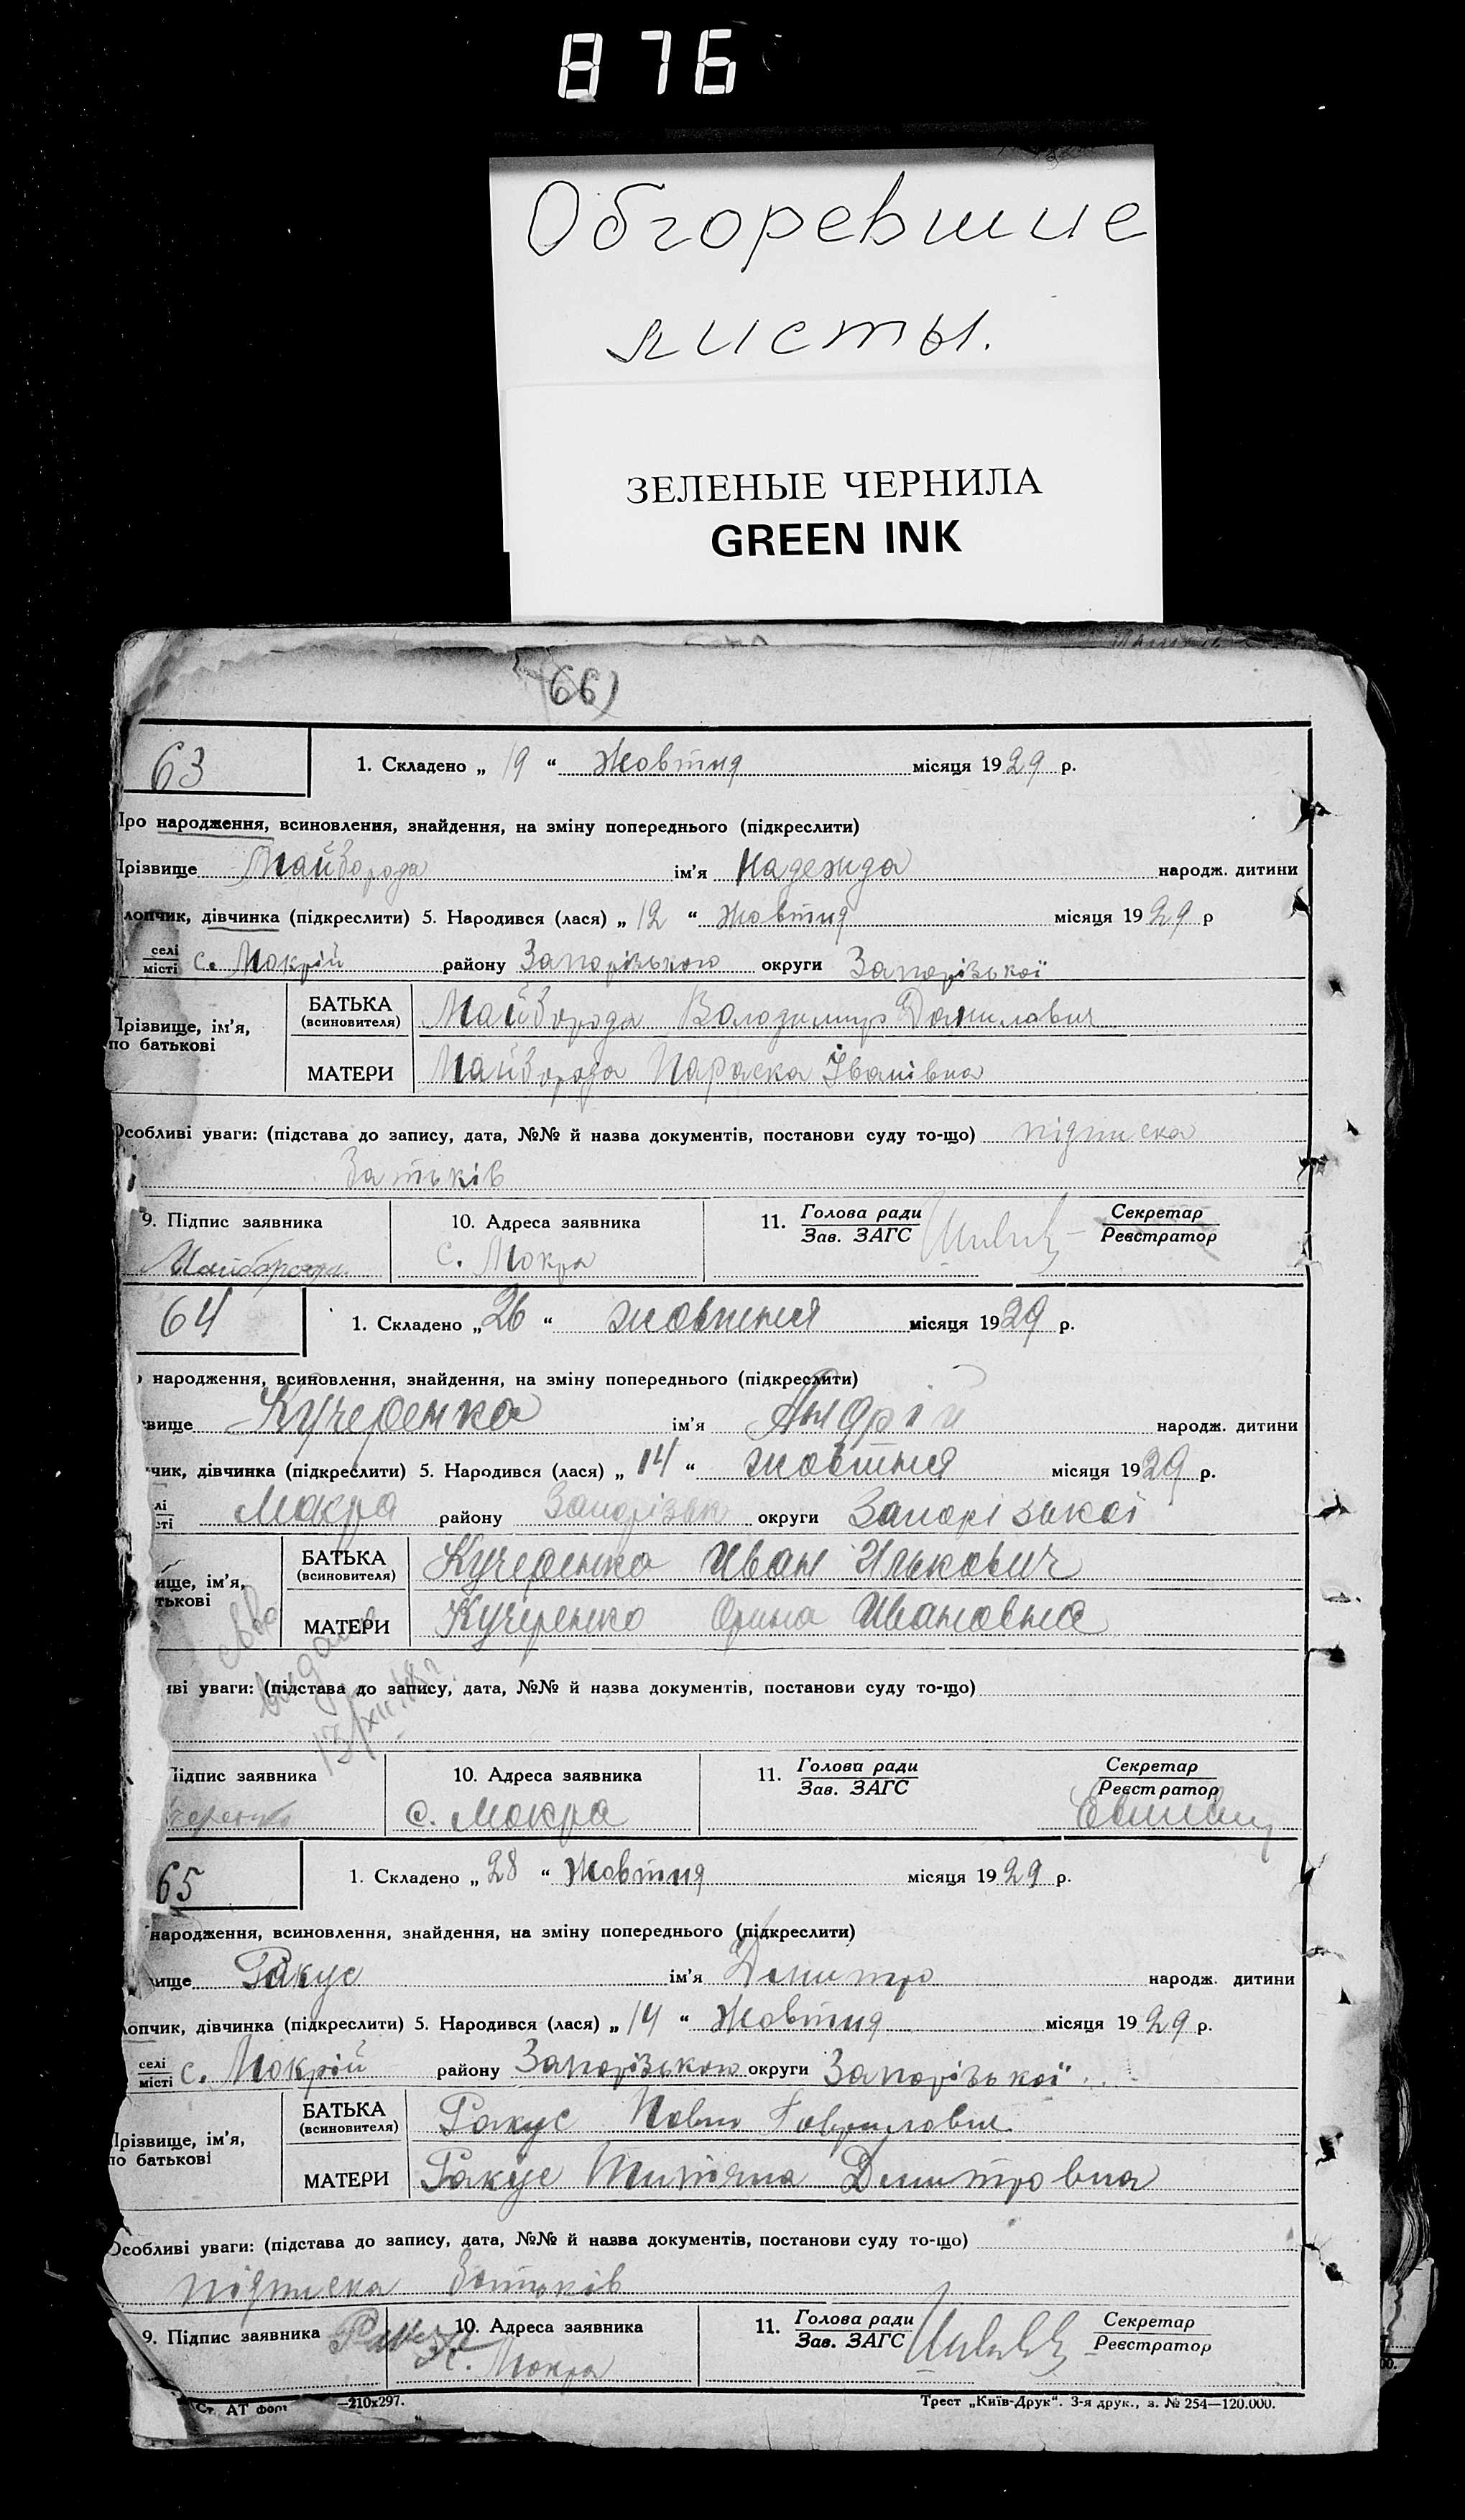 876
Обгоревшие
листы.
ЗЕЛЕНЫЕ ЧЕРНИЛА
GREEN INK
66)
63
1. Складено „ 19 “ Жовтня місяця 1929 р.
Про народження, всиновлення, знайдення, на зміну попереднього (підкреслити)
Прізвище Майборода ім’я Надежда народж. дитини
лопчик, дівчинка (підкреслити) 5. Народився (лася) „ 12 “ Жовтня місяця 1929 р
селі
місті с. Мокрій району Запорізького округи Запорізької
Прізвище, ім’я,
по батькові
БАТЬКА
(всиновителя) Майборода Володимир Данилович
МАТЕРИ Майборода Параска Іванівна
Особливі уваги: (підстава до запису, дата, №№ й назва документів, постанови суду то-що) підписка
батьків
9. Підпис заявника 10. Адреса заявника 11. Голова ради
Зав. ЗАГС Секретар
Реєстратор
Майборода с. Мокра
64
1. Складено „ 26 “ жовтня місяця 1929 р.
народження, всиновлення, знайдення, на зміну попереднього (підкреслити)
звище Кучеренко ім’я Андрій народж. дитини
чик, дівчинка (підкреслити) 5. Народився (лася) „ 14 “ жовтня місяця 1929 р.
лі
сті Мокра району Запорізьк округи Запорізької
ище, ім’я,
тькові
БАТЬКА
(всиновителя) Кучеренко Иван Илькович
МАТЕРИ Кучеренко Орина Ивановна
видано
13/XII
иві уваги: (підстава до запису, дата, №№ й назва документів, постанови суду то-що)
Підпис заявника 10. Адреса заявника 11. Голова ради
Зав. ЗАГС Секретар
Реєстратор
черенко с. Мокра
65
1. Складено „ 28 “ Жовтня місяця 1929 р.
народження, всиновлення, знайдення, на зміну попереднього (підкреслити)
вище Ракус ім’я Дмитро народж. дитини
лопчик, дівчинка (підкреслити) 5. Народився (лася) „ 14 “ Жовтня місяця 1929 р.
селі
місті с. Мокрій району Запорізького округи Запорізької
Прізвище, ім’я,
по батькові
БАТЬКА
(всиновителя) Ракус Павло Гаврилович
МАТЕРИ Ракус Титяна Дмитровна
Особливі уваги: (підстава до запису, дата, №№ й назва документів, постанови суду то-що)
підписка батьків
9. Підпис заявника 10. Адреса заявника 11. Голова ради
Зав. ЗАГС Секретар
Реєстратор
с. Мокра
Ст. АТ форм —210х297. Трест „Київ-Друк“. 3-я друк., з. № 254—120.000.